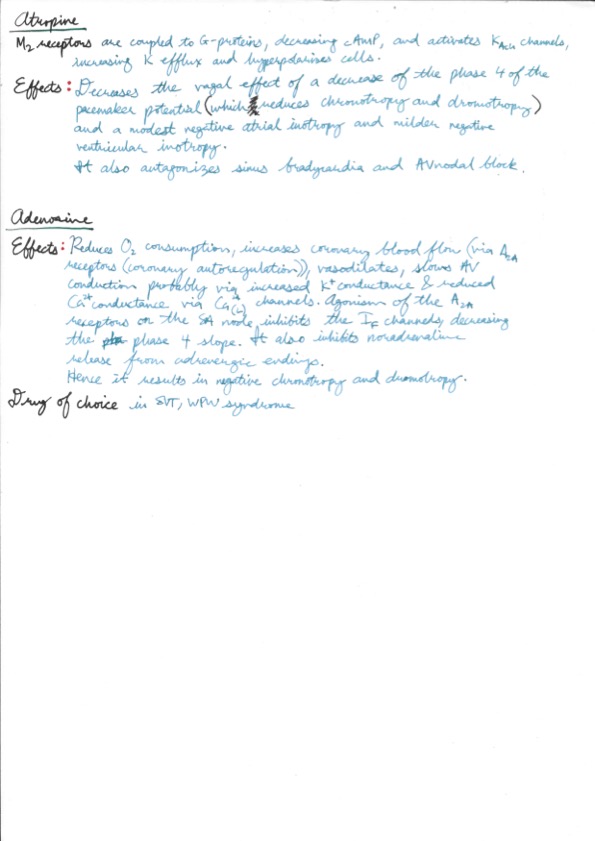 Atropine
M2 receptors are coupled to G-proteins, decreasing cAMP, and activates KACh channels,
increasing K efflux and hyperpolarizes cells.
Effects: Decreases the vagal effect of a decrease of the phase 4 of the
pacemaker potential (which reduces chronotropy and dromotropy)
and a modest negative atrial inotropy and milder negative
ventricular inotropy.
It also antagonizes sinus bradycardia and AV nodal block.
Adenosine
Effects: Reduces O2 consumption, increases coronary blood flow (via A2A
receptors (coronary autoregulation)), vasodilates, slows AV
conduction probably via increased K+ conductance & reduced
Ca2+ conductance via Ca(L) channels. Agonism of the A2A
receptors on the SA node inhibits the IF channels, decreasing
the phase 4 slope. It also inhibits noradrenaline
release from adrenergic endings.
Hence it results in negative chronotropy and dromotropy.
Drug of choice in SVT, WPW syndrome